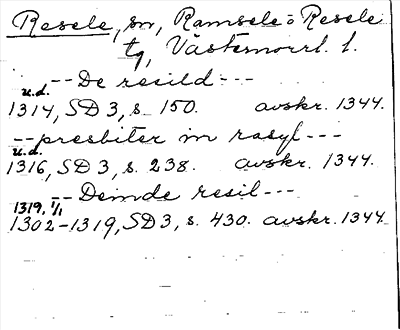 Resele, sn, Ramsele o Resele
tg, Västernorrl. l.
-- De resild ---
u.d.
1314, SD 3, s. 150. avskr. 1344.
-- presbiter in rasyl ---
u.d.
1316, SD 3, s. 238. avskr. 1344.
-- Deinde resil ---
1319, 1/1
1302-1319, SD 3, s. 430. avskr. 1344.